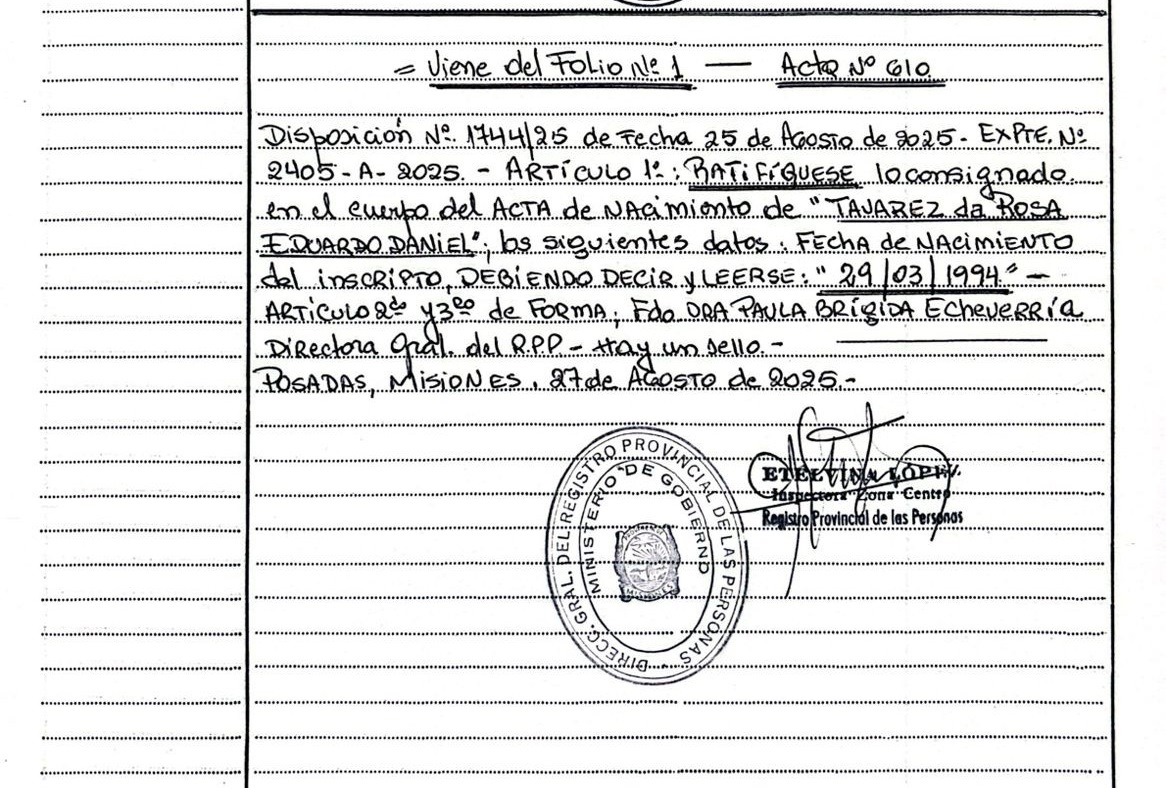 = Viene del Folio Nº 1 — Acta Nº 610.
Disposición Nº. 1744/25 de Fecha 25 de Agosto de 2025.- EXPTE. Nº
2405-A-2025. - ARTÍCULO 1º: RATIFÍQUESE lo consignado
en el cuerpo del ACTA de NAcimiento de "TAVAREZ da ROSA
EDUARDO DANIEL"; los siguientes datos: FECHA de NACIMIENTO
del inscripto, DEBIENDO DECIR y LEERSE: "29/03/1994." —
ARTÍCULO 2do y 3ro de FORMA; Fdo. DRA PAULA BRÍGIDA EcheverrÍa
Directora Gral. del R.P.P - Hay un sello.-
POSADAS, MISIONES, 27 de AGOSTO de 2025.-
DIRECC. GRAL. DEL REGISTRO PROVINCIAL DE LAS PERSONAS
MINISTERIO DE GOBIERNO
MISIONES
ETELVINA LÓPEZ
Inspectora Zona Centro
Registro Provincial de las Personas